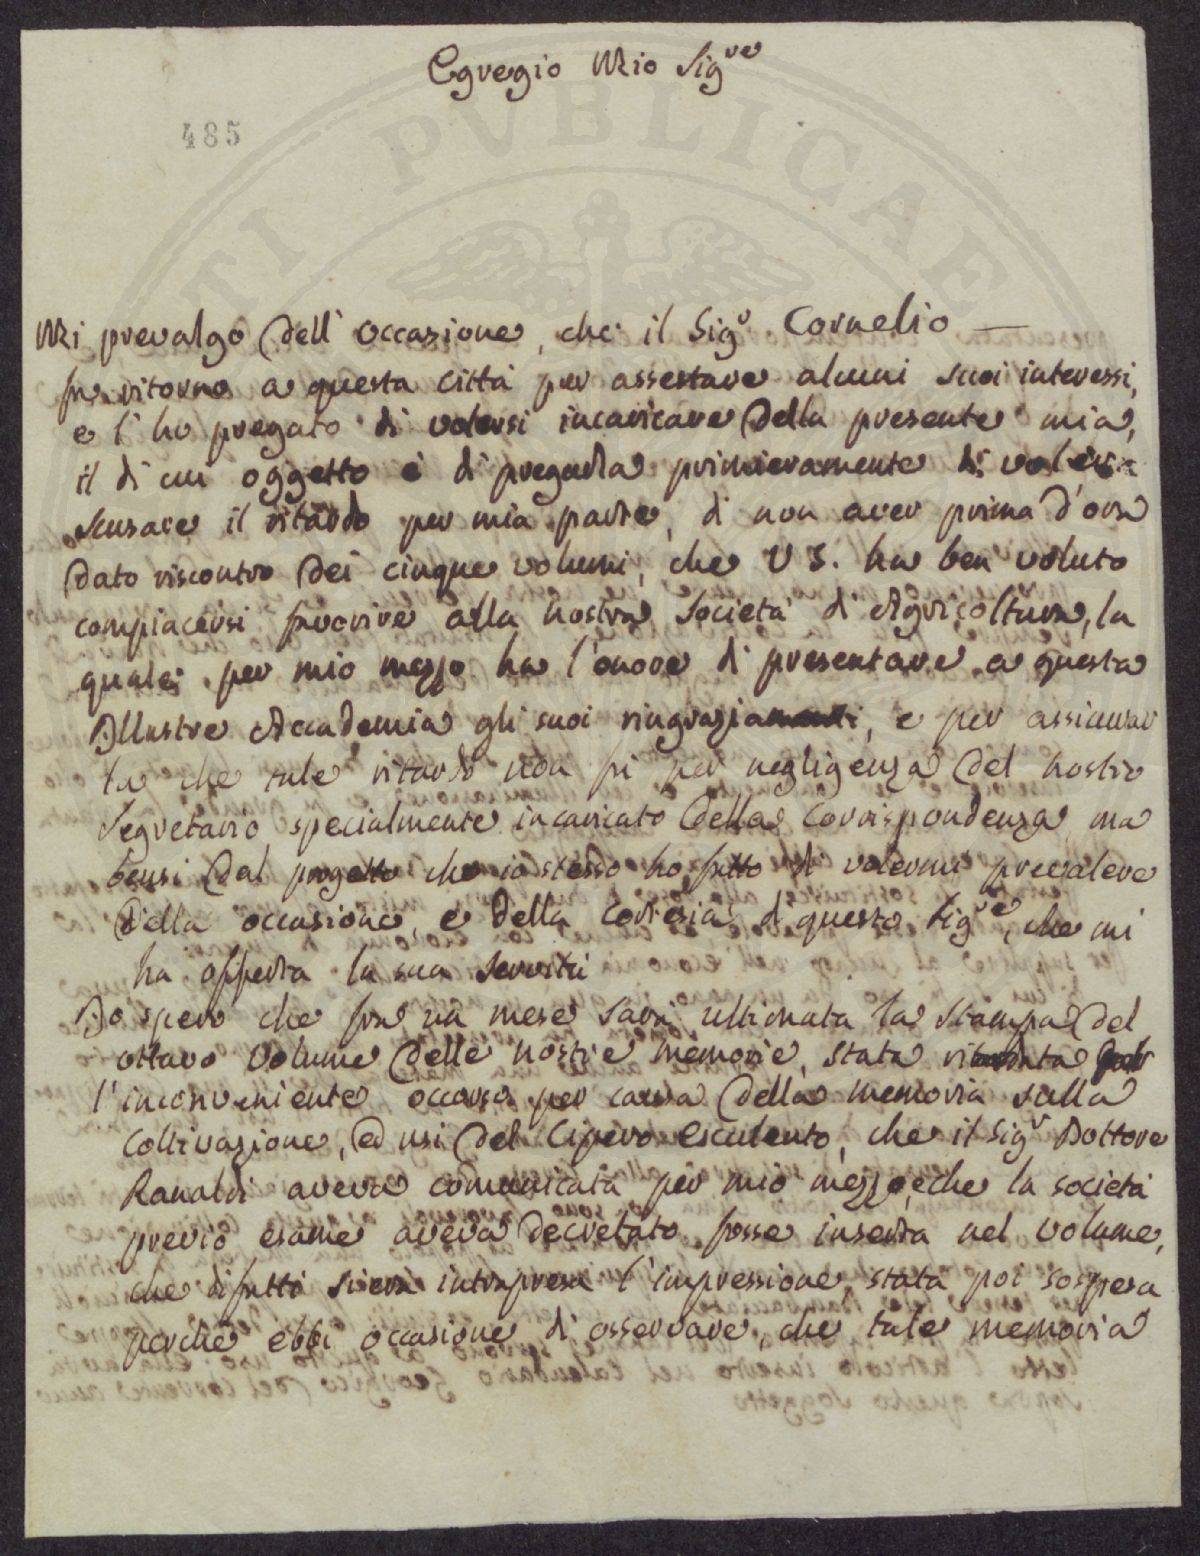 Egregio Mio Sig.re
485
Mi prevalgo dell'occasione, che il Sig.r Cornelio
fa ritorno a questa città per assestare alcuni suoi interessi,
e l'ho pregato di volersi incaricare della presente mia,
il di cui oggetto è di pregarla primieramente di
scusare il ritardo per mia parte, di non aver prima d'ora
dato riscontro dei cinque volumi, che V S. ha ben voluto
compiacersi favorire alla nostra Società di Agricoltura, la
quale per mio mezzo ha l'onore di presentare a questa
Illustre Accademia gli suoi ringraziamenti, e per assicurar
la che tale ritardo non fù per negligenza del nostro
Segretario specialmente incaricato della Corrispondenza ma
bensi dal progetto che io stesso ho fatto di valermi prevalere
della occasione, e della cortesia di questo Sig.re, che mi
ha offerta la sua servitù
Io spero che fra un mese sarà ultimata la stampa del
ottavo volume delle nostre memorie, stata ritardata
l'inconveniente occorso per causa della memoria sulla
coltivazione, ed usi del Cipero esculento, che il Sig.r Dottore
Ranaldi aveva comunicata per mio mezzo, e che la società
previo esame aveva decretato fosse inserta nel volume,
che di fatti si era intrapresa l'impressione, stata poi sospesa
perché ebbi occasione di osservare, che tale memoria